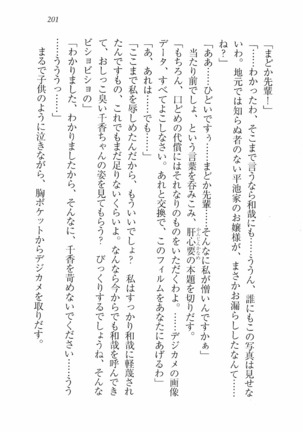 201
「まどか先輩！」
「……わかったわ、そこまで言うなら和哉にも……ううん、誰にもこの写真は見せな
いわ。地元では知らぬ者のない平池家のお嬢様が、まさかお漏らししたなんて……」
「ああ……ひどいですぅ……まどか先輩……そんなに私が憎いんですかぁ」
当たり前でしょ、という言葉を呑みこみ、肝心要の本題を切りだす。
かんじんかなめ
「もちろん、口どめの代償にはそれなりのものをいただくわよ。……デジカメの画像
データ、すべてよこしなさい。あれと交換で、このフィルムをあなたにあげるわ」
「あ、あれは……でも……」
「ここまで私を辱しめたんだから、もういいでしょ？　私はすっかり和哉に軽蔑され
たんですもの、これでもまだ足りないくらいよ。なんなら今からでも和哉を呼んでき
て、おしっこ臭い千香ちゃんの姿を見てもらう？　びっくりするでしょうね、そんな
ビショビショの」
「わかりました、わかりましたから、そんなに、千香を苛めないでください……うう
……ううっ……」
まるで子供のように泣きながら、胸ポケットからデジカメを取りだす。